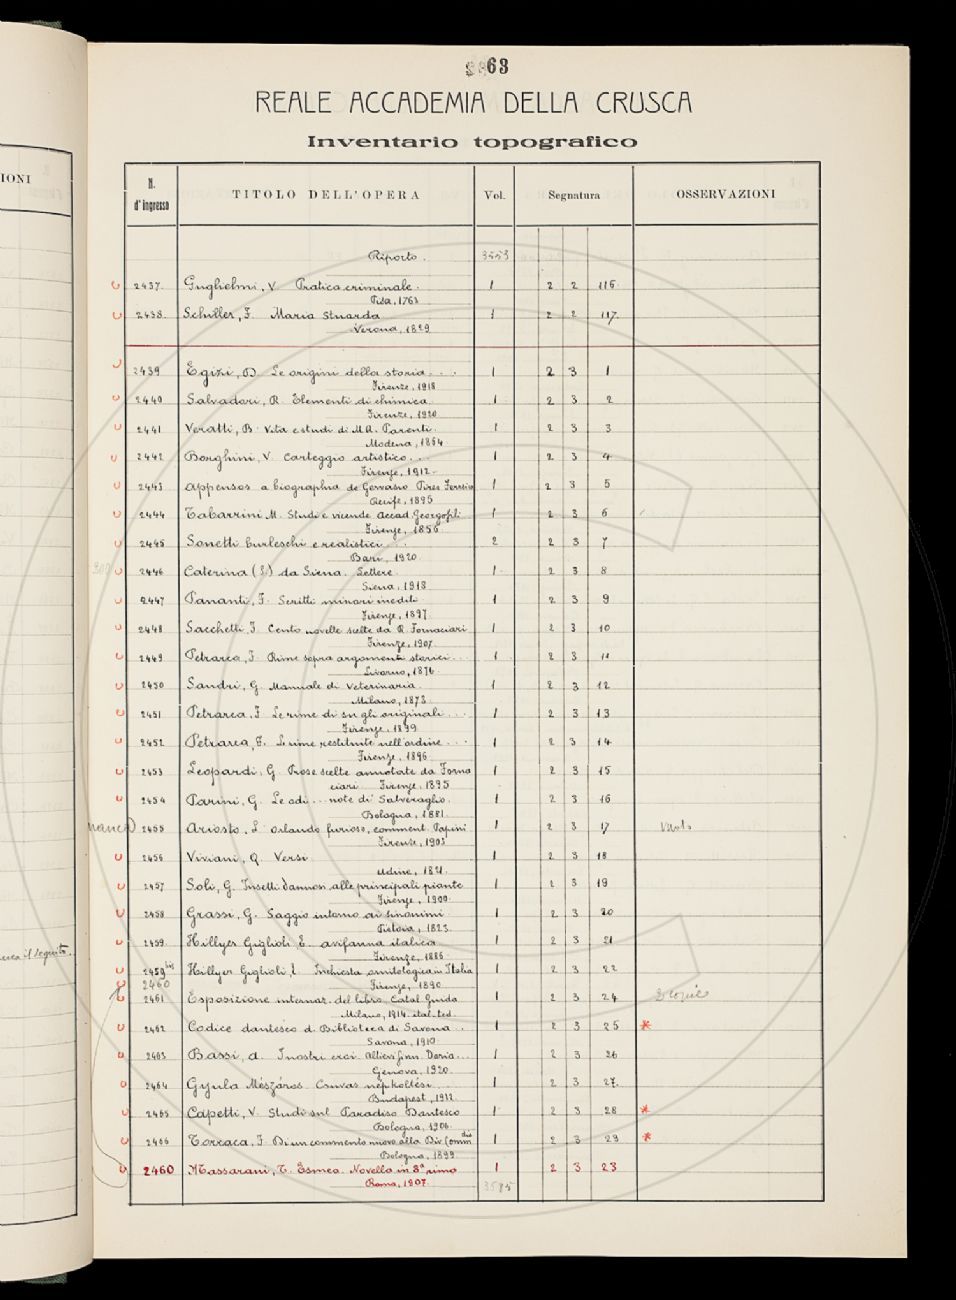 63
REALE ACCADEMIA DELLA CRUSCA
Inventario topografico
IONI
N. d'ingresso TITOLO DELL'OPERA Vol. Segnatura OSSERVAZIONI
Riporto. 3553
2437. Guglielmi, V. Pratica criminale. 1 2 2 116.
Pisa, 1763
2438. Schiller, F. Maria Stuarda 1 2 2 117.
Verona, 1829
2439 Egizi, D. Le origini della storia... 1 2 3 1
Firenze, 1918
2440 Salvadori, R. Elementi di chimica. 1 2 3 2
Firenze, 1920
2441 Veratti, B. Vita e studi di M.A. Parenti. 1 2 3 3
Modena, 1864.
2442 Borghini, V. Carteggio artistico... 1 2 3 4
Firenze, 1912.
2443 Appensos a biographia de Gervasio Pires Ferreira 1 2 3 5
Recife, 1895
2444 Tabarrini M. Studi e vicende Accad. Georgofili 1 2 3 6
Firenze, 1856
2445 Sonetti burleschi e realistici... 2 2 3 7
Bari, 1920
2446 Caterina (S.) da Siena. Lettere. 1 2 3 8
Siena, 1913
2447 Pananti, F. Scritti minori inediti 1 2 3 9
Firenze, 1897
2448 Sacchetti, F. Cento novelle scelte da R. Fornaciari 1 2 3 10
Firenze, 1907.
2449 Petrarca, F. Rime sopra argomenti storici... 1 2 3 11
Livorno, 1876
2450 Sandri, G. Manuale di Veterinaria. 1 2 3 12
Milano, 1873
2451 Petrarca, F. Le rime di su gli originali... 1 2 3 13
Firenze, 1899
2452 Petrarca, F. Le rime restituite nell'ordine... 1 2 3 14
Firenze, 1896
2453 Leopardi, G. Prose scelte annotate da Forna 1 2 3 15
ciari Firenze, 1895
2454 Parini, G. Le odi... note di Salveraglio. 1 2 3 16
Bologna, 1881.
2455 Ariosto, L. Orlando furioso, comment. Papini 1 2 3 17
Firenze, 1903
2456 Viviani, Q. Versi 1 2 3 18
Udine, 1821.
2457 Soli, G. Insetti dannosi alle principali piante 1 2 3 19
Firenze, 1900.
2458 Grassi, G. Saggio intorno ai sinonimi 1 2 3 20
Pistoia, 1823.
2459. Hillyer Giglioli E. avifauna italica 1 2 3 21
Firenze, 1886
2459 bis Hillyer Giglioli, E. Inchiesta ornitologica in Italia 1 2 3 22
2460 Firenze, 1890
2461 Esposizione internaz. del libro. Catal. Guida 1 2 3 24
Milano, 1914. ital-ted.
2462 Codice dantesco d. Biblioteca di Savona.. 1 2 3 25 *
Savona, 1910
2463 Bassi, A. I nostri eroi. Alfieri finn Doria... 1 2 3 26
Genova, 1920.
2464 Gyula Mészáros. Csuvas népköltési... 1 2 3 27.
Budapest, 1912
2465 Capetti, V. Studi sul Paradiso Dantesco 1 2 3 28 *
Bologna, 1906.
2466 Torraca, F. Di un commento nuovo alla Div. Comm 1 2 3 29 *
Bologna, 1899.
2460 Massarani, T. Esmea. Novella in 8ª rima 1 2 3 23
Roma, 1907.
3585